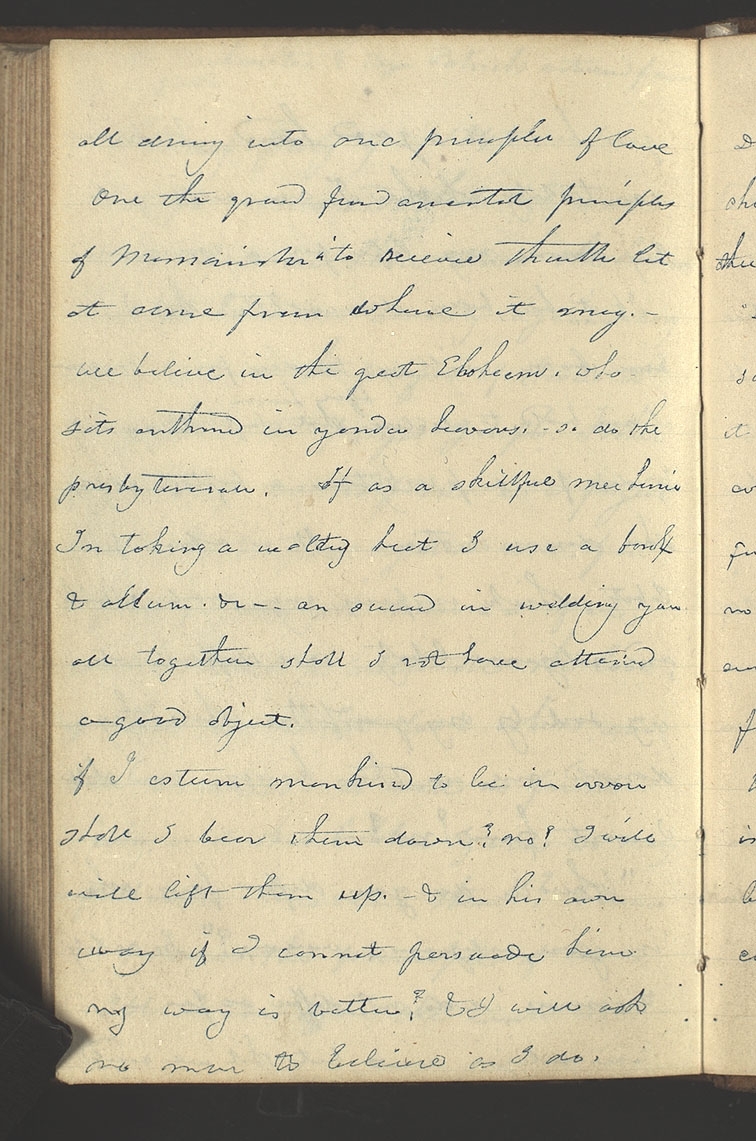 all diving into one principle of love
One the grand fundamental principles
of Mormonism is to receive thruth let
it come from whence it may. -
we belive in the great Eloheem. who
sits enthrond in yonder heavens. - so do the
presbyterian. If as a skillful mechanic
In taking a welding heat I use a borax
& allum. &c - - an succeed in welding you
all together shall I not have attaind
a good object.
if I esteem mankind to be in error
shall I bear them down? no! I will
will lift them up. - & in his own
way if I cannot persuade him
my way is better! & I will ask
no man to believe as I do.